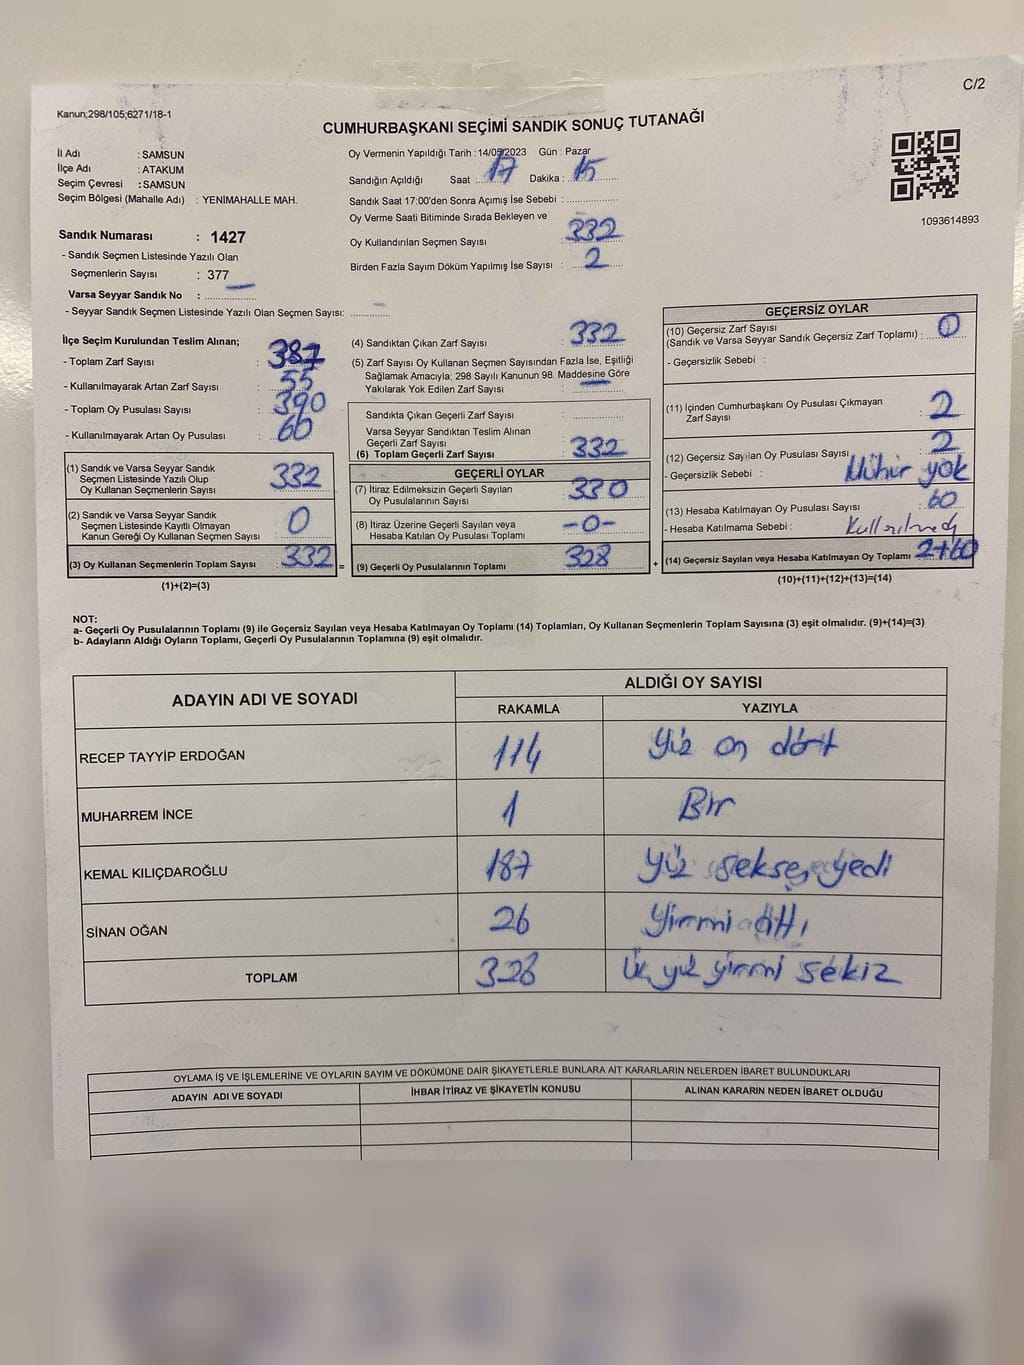 C/2
Kanun;298/105;6271/18-1
CUMHURBAŞKANI SEÇİMİ SANDIK SONUÇ TUTANAĞI
İl Adı : SAMSUN
İlçe Adı : ATAKUM
Seçim Çevresi : SAMSUN
Seçim Bölgesi (Mahalle Adı) : YENİMAHALLE MAH.
Sandık Numarası : 1427
- Sandık Seçmen Listesinde Yazılı Olan
Seçmenlerin Sayısı : 377
Varsa Seyyar Sandık No : ................
- Seyyar Sandık Seçmen Listesinde Yazılı Olan Seçmen Sayısı: ............
Oy Vermenin Yapıldığı Tarih : 14/05/2023 Gün : Pazar
Sandığın Açıldığı Saat : 17 Dakika : 15
Sandık Saat 17:00'den Sonra Açımış İse Sebebi : ................
Oy Verme Saati Bitiminde Sırada Bekleyen ve
Oy Kullandırılan Seçmen Sayısı : 332
Birden Fazla Sayım Döküm Yapılmış İse Sayısı : 2
1093614893
İlçe Seçim Kurulundan Teslim Alınan;
- Toplam Zarf Sayısı : 387
- Kullanılmayarak Artan Zarf Sayısı : 55
- Toplam Oy Pusulası Sayısı : 390
- Kullanılmayarak Artan Oy Pusulası : 60
(1) Sandık ve Varsa Seyyar Sandık
Seçmen Listesinde Yazılı Olup
Oy Kullanan Seçmenlerin Sayısı : 332
(2) Sandık ve Varsa Seyyar Sandık
Seçmen Listesinde Kayıtlı Olmayan
Kanun Gereği Oy Kullanan Seçmen Sayısı : 0
(3) Oy Kullanan Seçmenlerin Toplam Sayısı : 332 =
(1)+(2)=(3)
(4) Sandıktan Çıkan Zarf Sayısı : 332
(5) Zarf Sayısı Oy Kullanan Seçmen Sayısından Fazla İse, Eşitliği
Sağlamak Amacıyla; 298 Sayılı Kanunun 98. Maddesine Göre
Yakılarak Yok Edilen Zarf Sayısı : ................
Sandıkta Çıkan Geçerli Zarf Sayısı : ................
Varsa Seyyar Sandıktan Teslim Alınan
Geçerli Zarf Sayısı : ................
(6) Toplam Geçerli Zarf Sayısı : 332
GEÇERLİ OYLAR
(7) İtiraz Edilmeksizin Geçerli Sayılan
Oy Pusulalarının Sayısı : 330
(8) İtiraz Üzerine Geçerli Sayılan veya
Hesaba Katılan Oy Pusulası Toplamı : -0-
(9) Geçerli Oy Pusulalarının Toplamı : 328 +
GEÇERSİZ OYLAR
(10) Geçersiz Zarf Sayısı
(Sandık ve Varsa Seyyar Sandık Geçersiz Zarf Toplamı) : 0
- Geçersizlik Sebebi :
(11) İçinden Cumhurbaşkanı Oy Pusulası Çıkmayan
Zarf Sayısı : 2
(12) Geçersiz Sayılan Oy Pusulası Sayısı : 2
- Geçersizlik Sebebi : Mühür yok
(13) Hesaba Katılmayan Oy Pusulası Sayısı : 60
- Hesaba Katılmama Sebebi :
(14) Geçersiz Sayılan veya Hesaba Katılmayan Oy Toplamı : 2+60
(10)+(11)+(12)+(13)=(14)
NOT:
a- Geçerli Oy Pusulalarının Toplamı (9) ile Geçersiz Sayılan veya Hesaba Katılmayan Oy Toplamı (14) Toplamları, Oy Kullanan Seçmenlerin Toplam Sayısına (3) eşit olmalıdır. (9)+(14)=(3)
b- Adayların Aldığı Oyların Toplamı, Geçerli Oy Pusulalarının Toplamına (9) eşit olmalıdır.
ADAYIN ADI VE SOYADI ALDIĞI OY SAYISI
RAKAMLA YAZIYLA
RECEP TAYYİP ERDOĞAN 114 Yüz on dört
MUHARREM İNCE 1 Bir
KEMAL KILIÇDAROĞLU 187 Yüz seksen yedi
SİNAN OĞAN 26 Yirmi altı
TOPLAM 328 Üç yüz yirmi sekiz
OYLAMA İŞ VE İŞLEMLERİNE VE OYLARIN SAYIM VE DÖKÜMÜNE DAİR ŞİKAYETLERLE BUNLARA AİT KARARLARIN NELERDEN İBARET BULUNDUKLARI
ADAYIN ADI VE SOYADI İHBAR İTİRAZ VE ŞİKAYETİN KONUSU ALINAN KARARIN NEDEN İBARET OLDUĞU